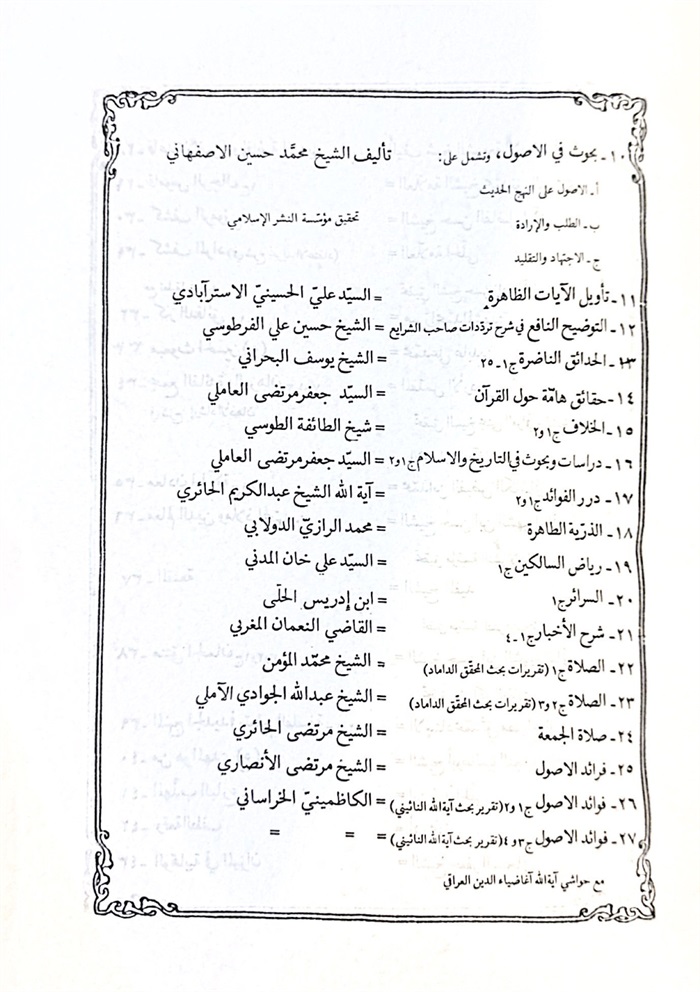 ١٠ـ بحوث في الاصول، وتشمل على: تأليف الشيخ محمّد حسين الاصفهاني
أـ الاصول على النهج الحديث
ب ـ الطلب والإرادة تحقيق مؤسّسة النشر الإسلامي
ج ـ الاجتهاد والتقليد
١١ـ تأويل الآيات الظاهرة = السيّد عليّ الحسينيّ الاسترآبادي
١٢ـ التوضيح النافع في شرح تردّدات صاحب الشرايع = الشيخ حسين علي الفرطوسي
١٣ـ الحدائق الناضرة ج١ـ٢٥ = الشيخ يوسف البحراني
١٤ـ حقائق هامّة حول القرآن = السيّد جعفر مرتضى العاملي
١٥ـ الخلاف ج١و٢ = شيخ الطائفة الطوسي
١٦ـ دراسات وبحوث في التاريخ والاسلام ج١و٢ = السيّد جعفر مرتضى العاملي
١٧ـ درر الفوائد ج١و٢ = آية الله الشيخ عبدالكريم الحائري
١٨ـ الذرّية الطاهرة = محمد الرازيّ الدولابي
١٩ـ رياض السالكين ج١ = السيّد علي خان المدني
٢٠ـ السرائر ج١ = ابن إدريس الحلّى
٢١ـ شرح الأخبار ج١ـ٤ = القاضي النعمان المغربي
٢٢ـ الصلاة ج١ (تقريرات بحث المحقّق الداماد) = الشيخ محمّد المؤمن
٢٣ـ الصلاة ج٢و٣ (تقريرات بحث المحقّق الداماد) = الشيخ عبدالله الجوادي الآملي
٢٤ـ صلاة الجمعة = الشيخ مرتضى الحائري
٢٥ـ فرائد الاصول = الشيخ مرتضى الأنصاري
٢٦ـ فوائد الاصول ج١و٢ (تقرير بحث آية الله النائيني) = الكاظمينيّ الخراساني
٢٧ـ فوائد الاصول ج٣و٤ (تقرير بحث آية الله النائيني) = = =
مع حواشي آية الله آغاضياء الدين العراقي